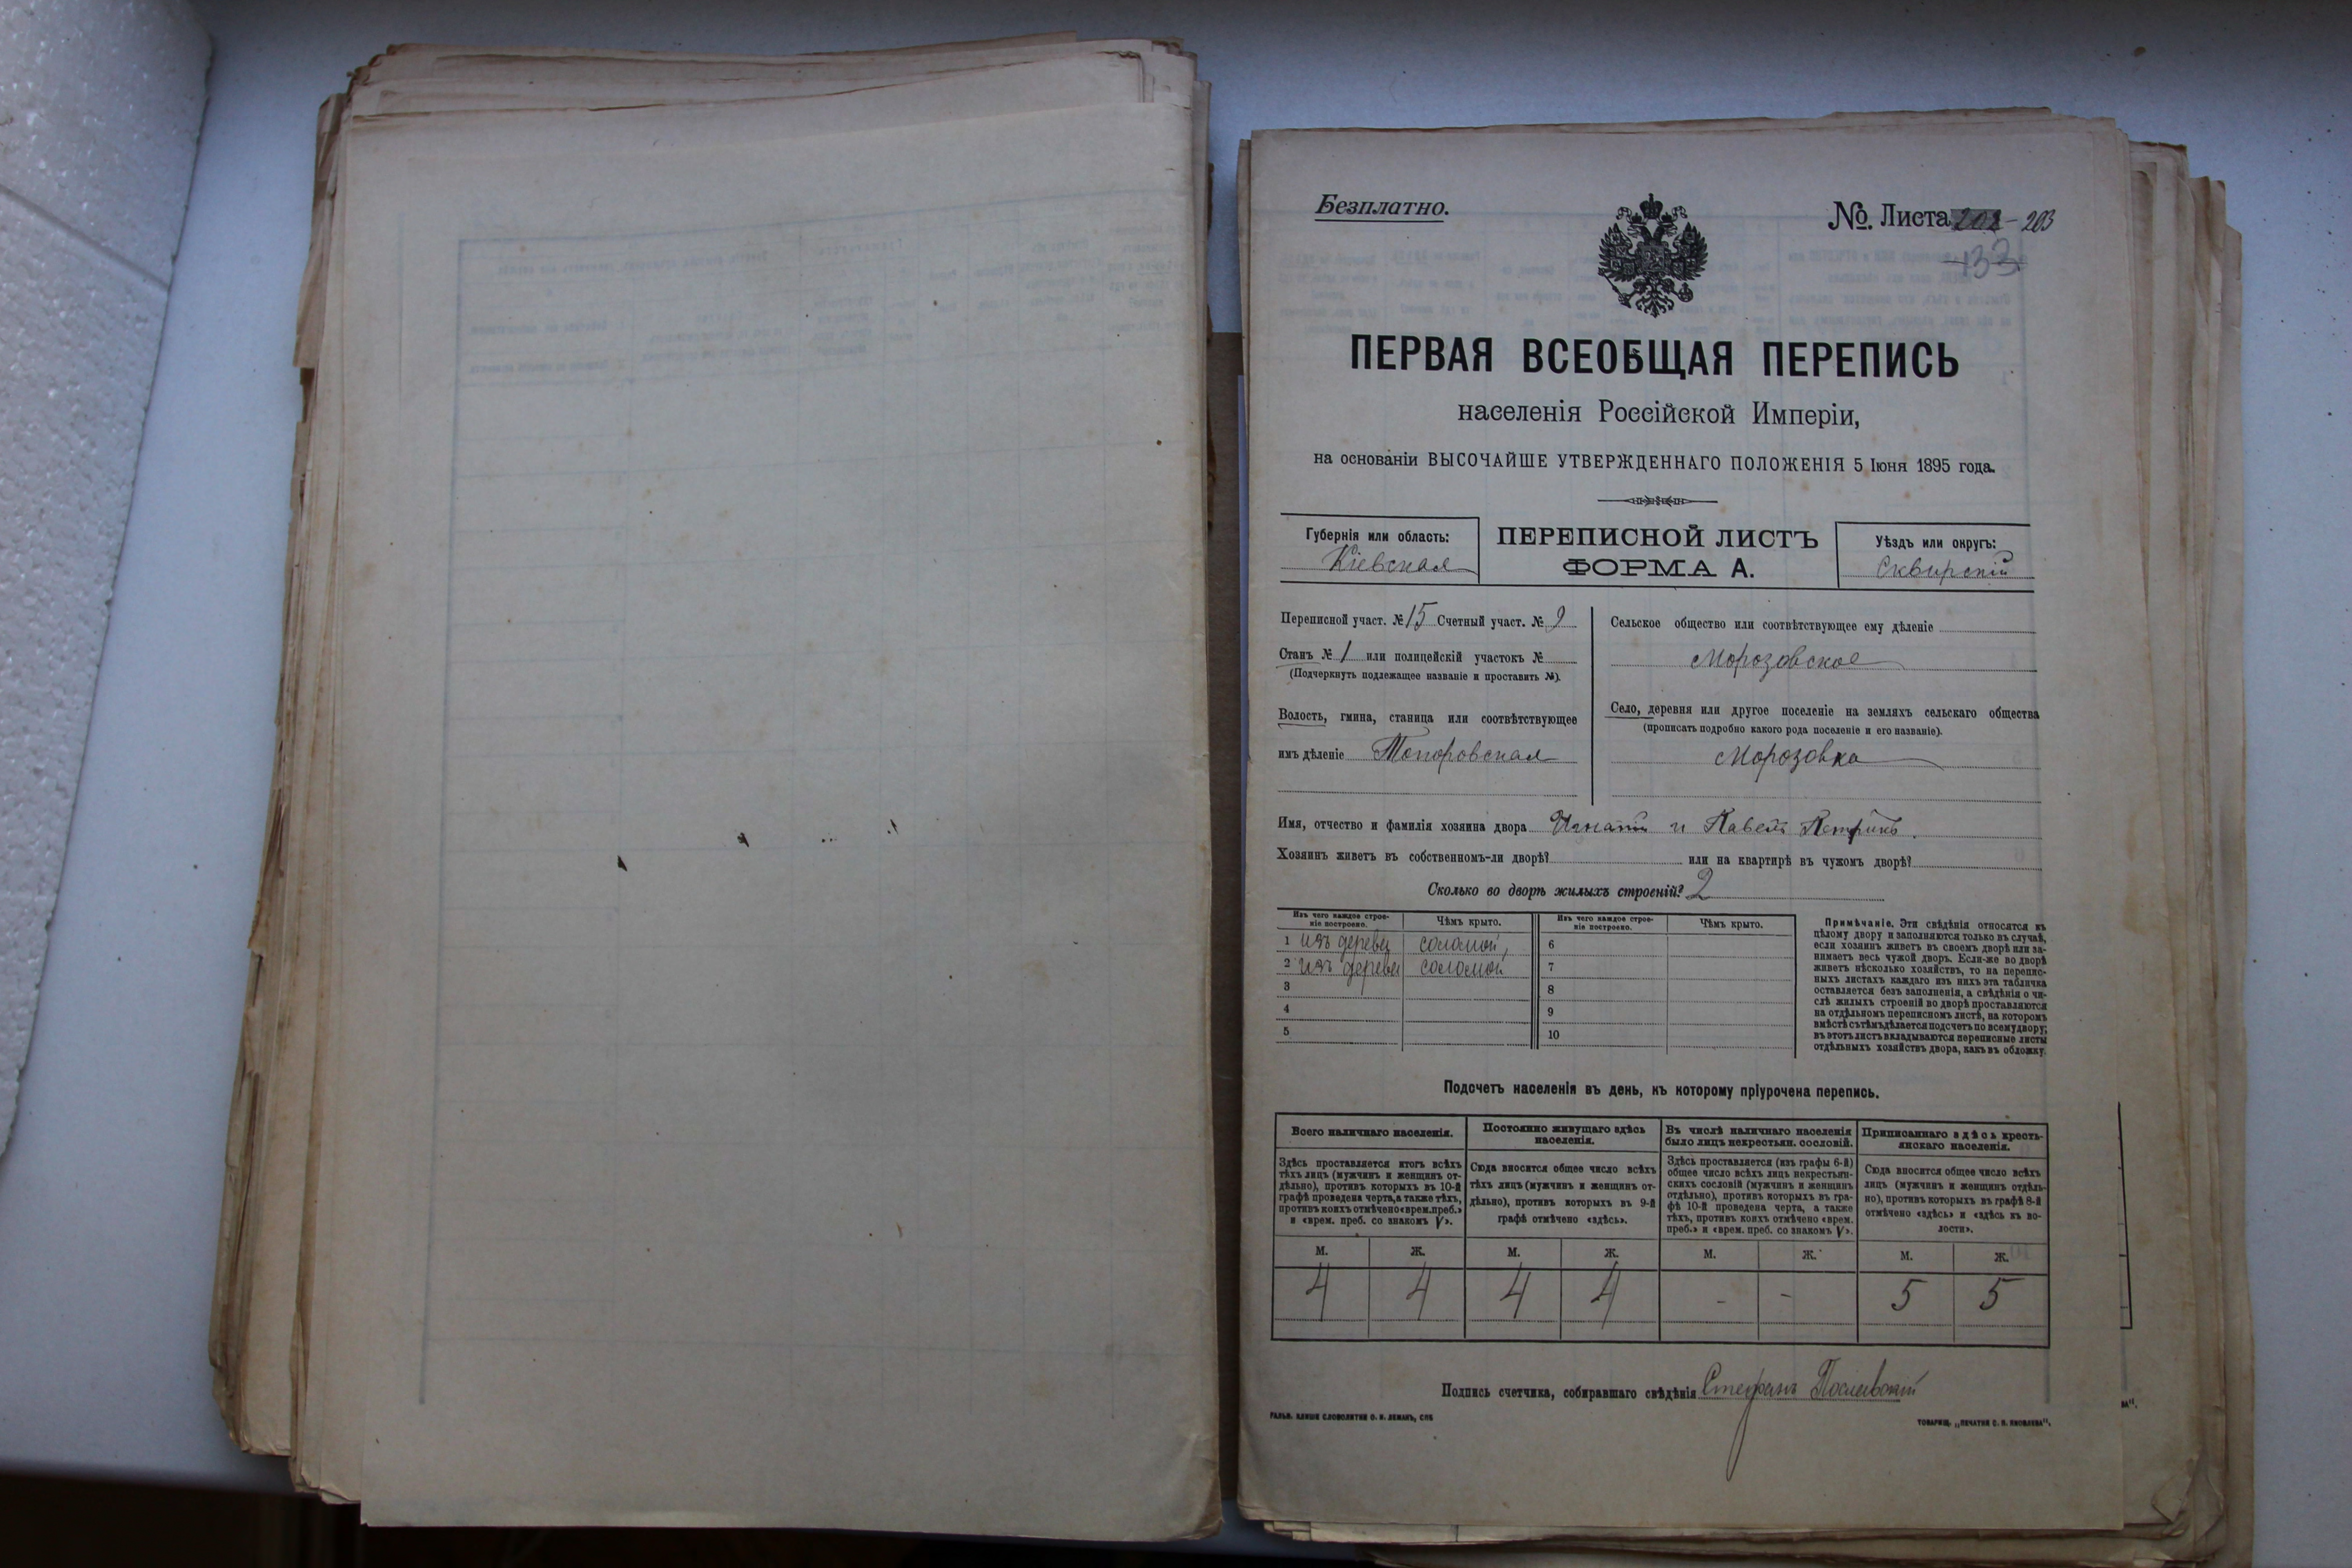 Безплатно.
№ Листа 202 - 203
133
ПЕРВАЯ ВСЕОБЩАЯ ПЕРЕПИСЬ
населенія Россійской Имперіи,
на основаніи ВЫСОЧАЙШЕ УТВЕРЖДЕННАГО ПОЛОЖЕНІЯ 5 Іюня 1895 года.
Губернія или область:
Кіевская
ПЕРЕПИСНОЙ ЛИСТЪ
ФОРМА А.
Уѣздъ или округъ:
Сквирскій
Переписной участ. № 15 Счетный участ. № 9
Станъ № 1 или полицейскій участокъ №
(Подчеркнуть подлежащее названіе и проставить №).
Волость, гмина, станица или соотвѣтствующее
имъ дѣленіе Топоровская
Сельское общество или соотвѣтствующее ему дѣленіе
Морозовское
Село, деревня или другое поселеніе на земляхъ сельскаго общества
(прописать подробно какого рода поселеніе и его названіе).
Морозовка
Имя, отчество и фамилія хозяина двора Игнатій и Павелъ Петрикъ.
Хозяинъ живетъ въ собственномъ-ли дворѣ? или на квартирѣ въ чужомъ дворѣ?
Сколько во дворѣ жилыхъ строеній? 2
Изъ чего каждое строе-
ніе построено.
Чѣмъ крыто.
Изъ чего каждое строе-
ніе построено.
Чѣмъ крыто.
1 изъ дерева соломой, 6
2 изъ дерева соломой 7
3 8
4 9
5 10
Примѣчаніе. Эти свѣдѣнія относятся къ
цѣлому двору и заполняются только въ случаѣ,
если хозяинъ живетъ въ своемъ дворѣ или за-
нимаетъ весь чужой дворъ. Если-же во дворѣ
живетъ нѣсколько хозяйствъ, то на перепис-
ныхъ листахъ каждаго изъ нихъ эта табличка
оставляется безъ заполненія, а свѣдѣнія о чи-
слѣ жилыхъ строеній во дворѣ проставляются
на отдѣльномъ переписномъ листѣ, на которомъ
вмѣстѣ съ тѣмъ дѣлается подсчетъ по всему двору;
въ этотъ листъ вкладываются переписные листы
отдѣльныхъ хозяйствъ двора, какъ въ обложку.
Подсчетъ населенія въ день, къ которому пріурочена перепись.
Всего наличнаго населенія.
Здѣсь проставляется итогъ всѣхъ
тѣхъ лицъ (мужчинъ и женщинъ от-
дѣльно), противъ которыхъ въ 10-й
графѣ проведена черта, а также тѣхъ,
противъ коихъ отмѣчено «врем. преб.»
и «врем. преб. со знакомъ V».
Постоянно живущаго здѣсь
населенія.
Сюда вносится общее число всѣхъ
тѣхъ лицъ (мужчинъ и женщинъ от-
дѣльно), противъ которыхъ въ 9-й
графѣ отмѣчено «здѣсь».
Въ числѣ наличнаго населенія
было лицъ некрестьян. сословій.
Здѣсь проставляется (изъ графы 6-й)
общее число всѣхъ лицъ некрестьян-
скихъ сословій (мужчинъ и женщинъ
отдѣльно), противъ которыхъ въ гра-
фѣ 10-й проведена черта, а также
тѣхъ, противъ коихъ отмѣчено «врем.
преб.» и «врем. преб. со знакомъ V».
Приписаннаго здѣсь кресть-
янскаго населенія.
Сюда вносится общее число всѣхъ
лицъ (мужчинъ и женщинъ отдѣль-
но), противъ которыхъ въ графѣ 8-й
отмѣчено «здѣсь» и «здѣсь къ во-
лости».
М. Ж. М. Ж. М. Ж. М. Ж.
4 4 4 4 - - 5 5
Подпись счетчика, собиравшаго свѣдѣнія Стефанъ
ГАЛЬВ. КЛИШЕ СЛОВОЛИТНИ О. И. ЛЕМАНЪ, СПБ
ТОВАРИЩ. „ПЕЧАТНЯ С. П. ЯКОВЛЕВА".